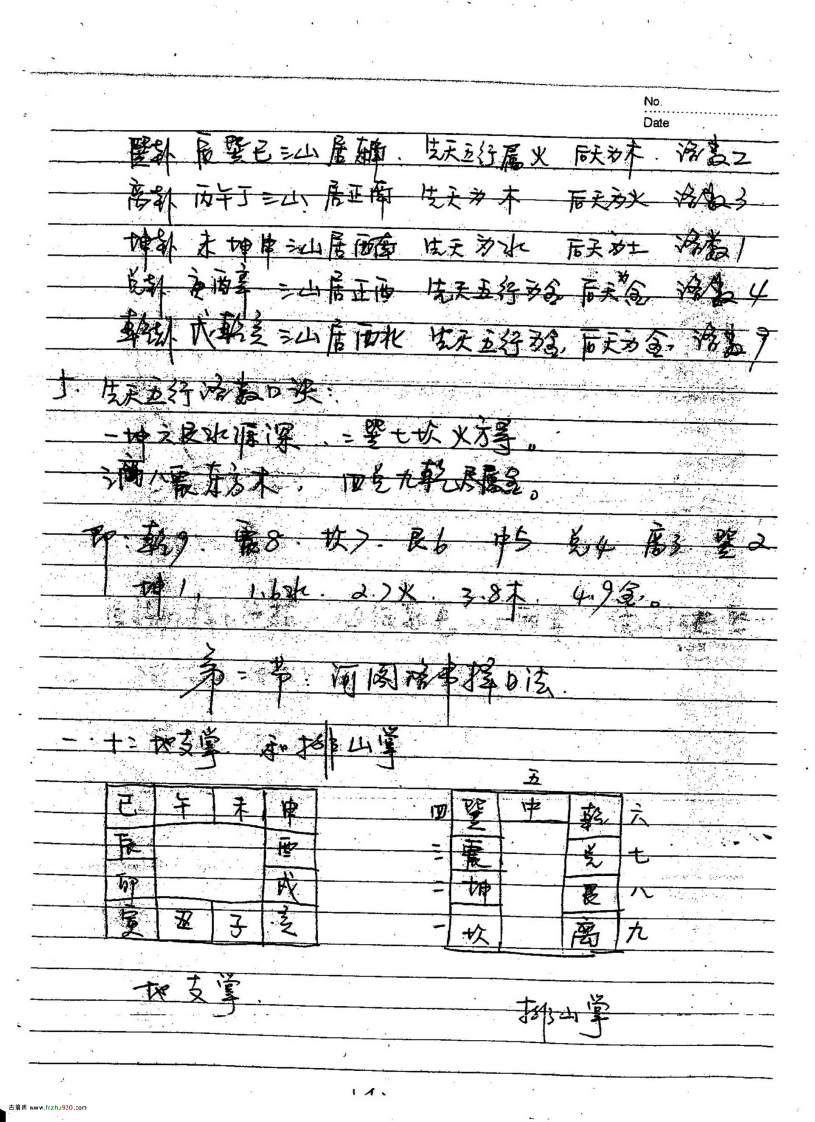 No.
Date
巽卦 辰巽巳三山居东南. 先天五行属火 后天为木. 洛数2
离卦 丙午丁三山. 居正南 先天为木 后天为火 洛数3
坤卦 未坤申三山居西南 先天为水 后天为土 洛数1
兑卦 庚酉辛 三山居正西 先天五行为金 后天为金 洛数4
乾卦 戌乾亥三山居西北 先天五行为金, 后天为金. 洛数9
先天五行洛数口诀:
一坤六艮水 深, 二巽七坎火 。
三离八震东方木, 四兑九乾尽属金。
即: 乾9. 震8. 坎7. 艮6 中5 兑4 离3 巽2
坤1, 1.6水. 2.7火. 3.8木. 4.9金。
第二节: 河图洛书择日法.
一. 十二地支掌 和排山掌
五
巳 午 未 申 四 巽 中 乾 六
辰 酉 三 震 兑 七
卯 戌 二 坤 艮 八
寅 丑 子 亥 一 坎 离 九
地支掌. 排山掌
古易库 www.fczhu920.com